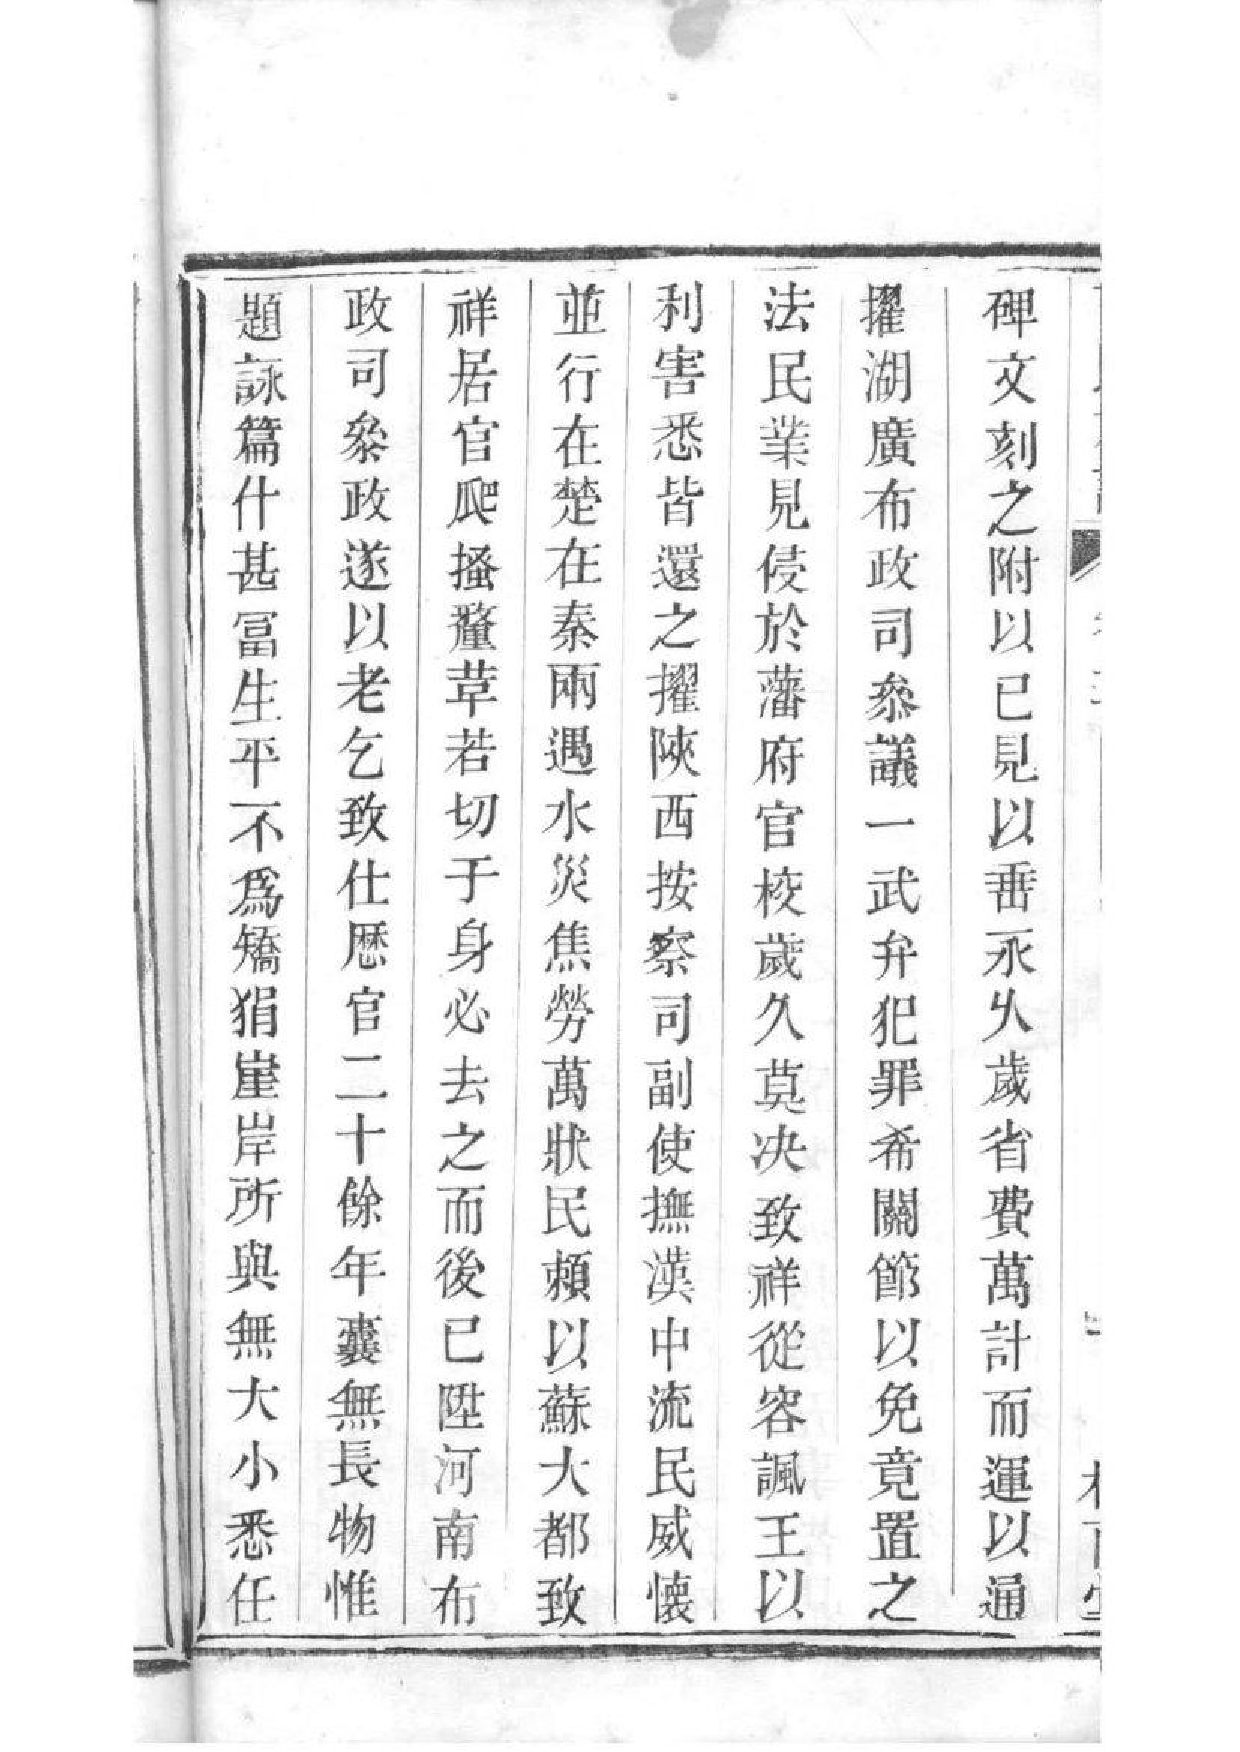 碑文刻之附以已見以垂永久歲省費萬計而運以通
擢湖廣布政司叅議一武弁犯罪希關節以免竟置之
法民業見侵於藩府官校歲久莫决致祥從容諷王以
利害悉皆還之擢陝西按察司副使撫漢中流民威懐
並行在楚在秦兩遇水災焦勞萬狀民頼以蘇大都致
祥居官爬搔釐革若切于身必去之而後已陞河南布
政司叅政遂以老乞致仕歷官二十餘年囊無長物惟
題詠篇什甚冨生平不爲矯狷崖岸所與無大小悉任